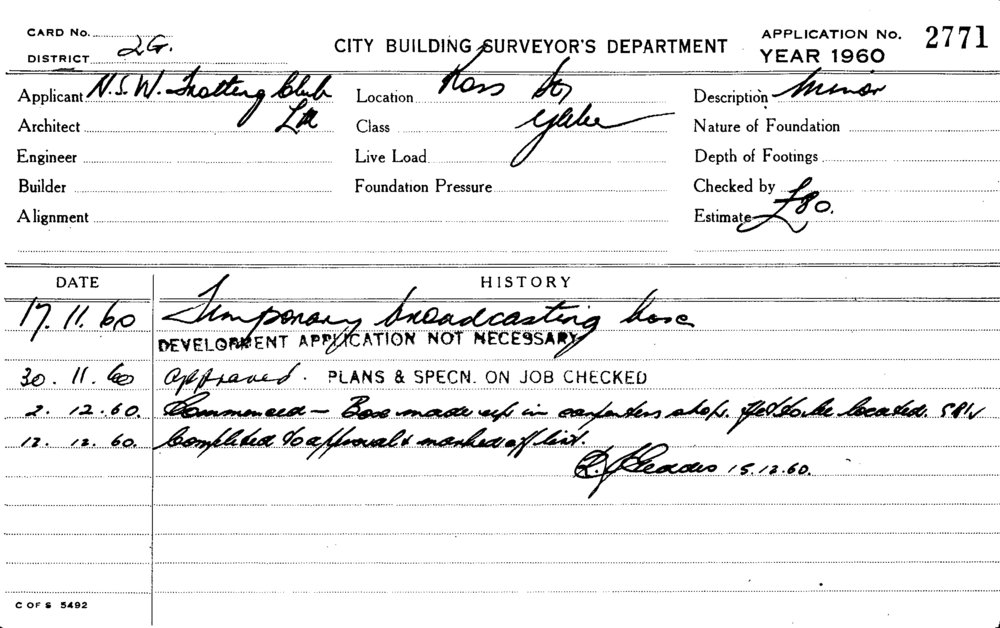 CARD No.
DISTRICT 2G.
CITY BUILDING SURVEYOR'S DEPARTMENT
APPLICATION No. 2771
YEAR 1960
Applicant N.S.W. Trotting Club Ltd
Location Ross St Glebe
Description Minor
Architect
Class
Nature of Foundation
Engineer
Live Load
Depth of Footings
Builder
Foundation Pressure
Checked by
Alignment
Estimate £80.
DATE HISTORY
17.11.60 Temporary broadcasting box
DEVELOPMENT APPLICATION NOT NECESSARY
30.11.60 Approved. PLANS & SPECN. ON JOB CHECKED
2.12.60. Commenced — Box made up in carpenters shop. Yet to be located.
12.12.60. Completed to approval & marked off list.
15.12.60.
C OF S 5492